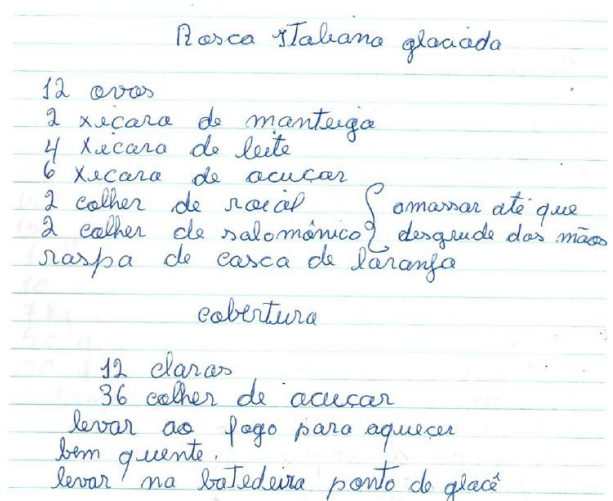 Rosca Italiana glaciada
12 ovos
2 xicara de manteiga
4 xicara de leite
6 xicara de acucar
2 colher de roial { amassar até que
2 colher de salomônico } desgrude das mãos
raspa de casca de laranja
cobertura
12 claras
36 colher de acucar
levar ao fogo para aquecer
bem quente.
levar na batedeira ponto de glacê